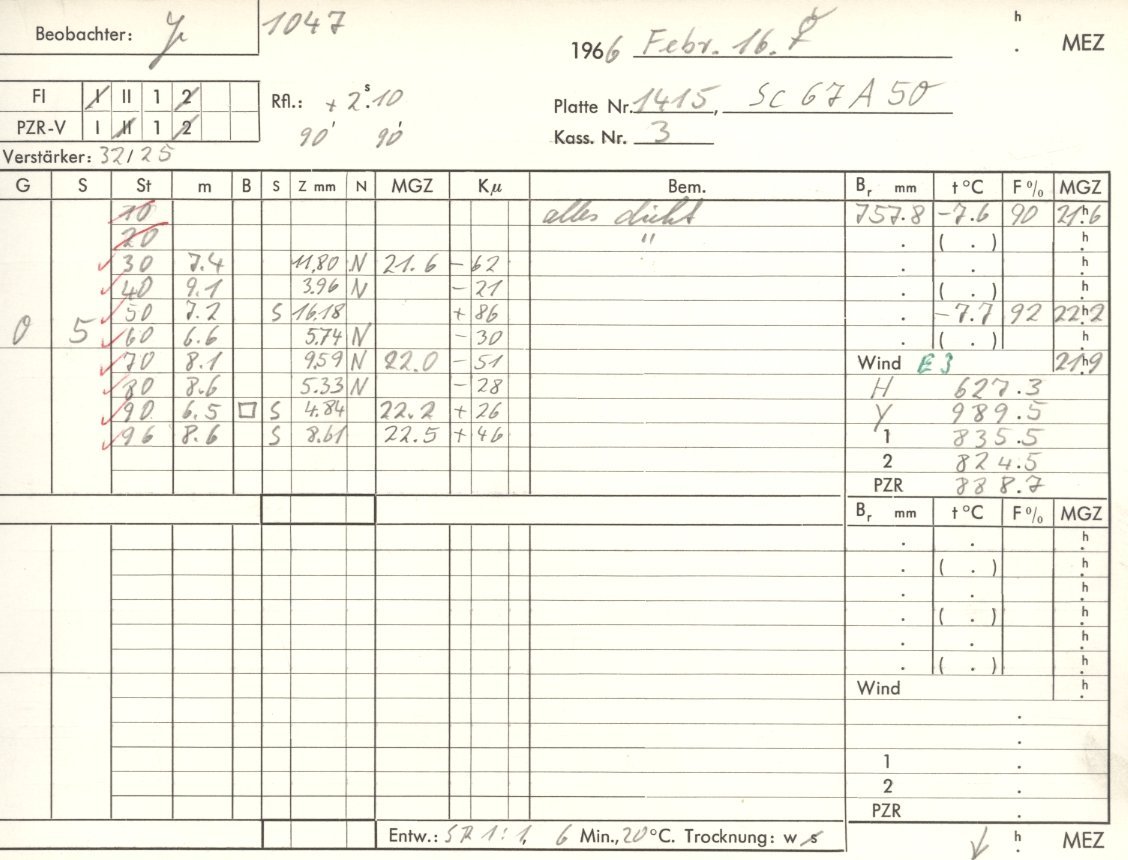 Beobachter: 1047 1966 Febr. 16. ☿ h . MEZ
FI I II 1 2 Rfl.: + 2s.10 Platte Nr. 1415, SC 67 A 50
PZR-V I II 1 2 90' 90' Kass. Nr. 3
Verstärker: 32/25
G S St m B S Z mm N MGZ Kμ Bem. Br mm t °C F % MGZ
10 alles dicht 757.8 -7.6 90 21h.6
20 " . ( . ) h.
30 7.4 11,80 N 21.6 - 62 . . h.
40 9.1 3.96 N - 21 . ( . ) h.
50 7.2 S 16.18 + 86 . -7.7 92 22h.2
0 5 60 6.6 5.74 N - 30 . ( . ) h.
70 8.1 9.59 N 22.0 - 51 Wind E 3 21h.9
80 8.6 5.33 N - 28 H 627.3
90 6.5 □ S 4.84 22.2 + 26 Y 989.5
96 8.6 S 8.61 22.5 + 46 1 835.5
2 824.5
PZR 888.7
Br mm t °C F % MGZ
. . h.
. ( . ) h.
. . h.
. ( . ) h.
. . h.
. ( . ) h.
Wind h.
.
.
1 .
2 .
PZR .
Entw.: SR 1:1, 6 Min., 20 °C. Trocknung: w s h . MEZ